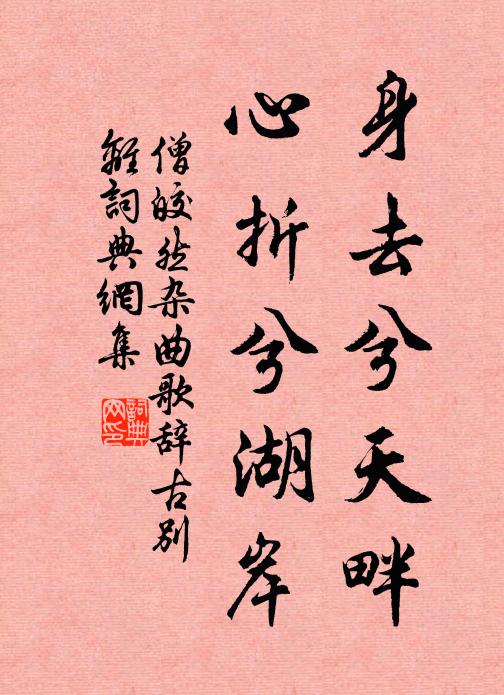 身去兮天畔
心折兮湖岸
僧皎然杂曲歌辞古别
離詞典網集
詞典
网印